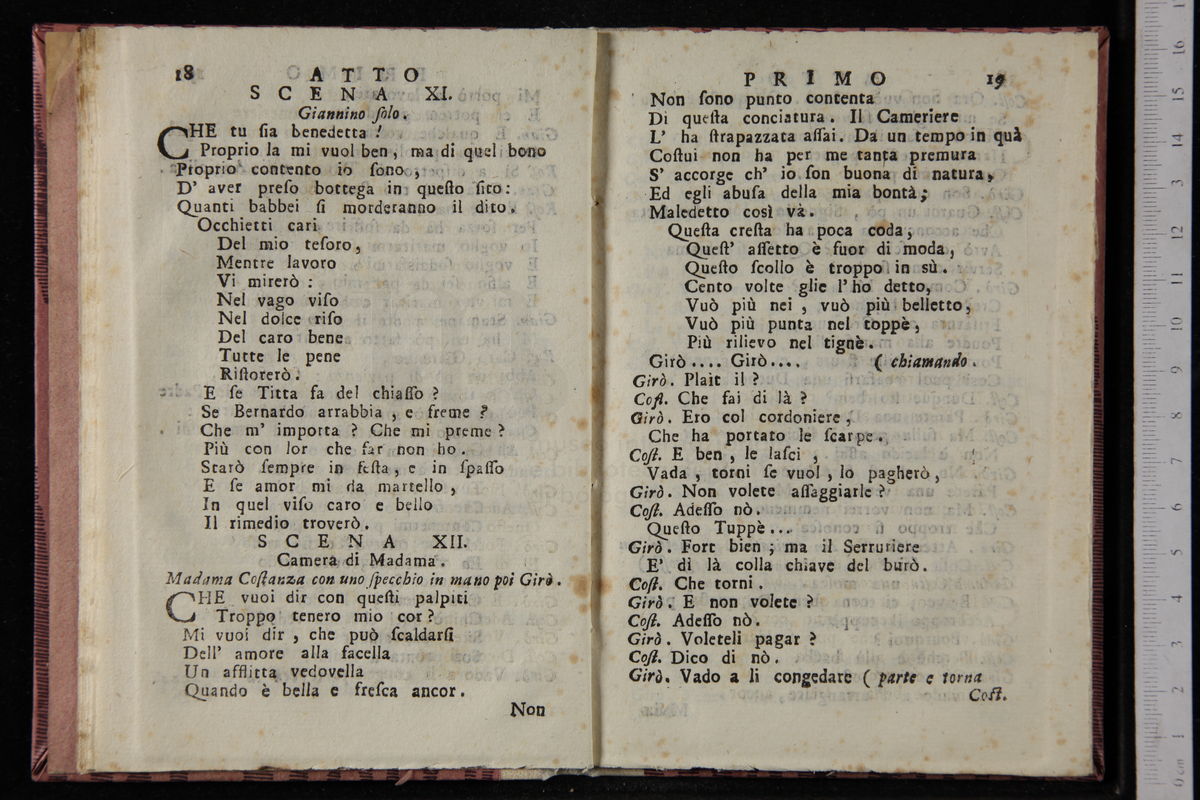 18 ATTO
SCENA XI.
Giannino ſolo.
CHE tu ſia benedetta!
Proprio la mi vuol ben, ma di quel bono
Proprio contento io ſono,
D' aver preſo bottega in queſto ſito:
Quanti babbei ſi morderanno il dito.
Occhietti cari
Del mio teſoro,
Mentre lavoro
Vi mirerò:
Nel vago viſo
Nel dolce riſo
Del caro bene
Tutte le pene
Riſtorerò.
E ſe Titta fa del chiaſſo?
Se Bernardo arrabbia, e freme?
Che m' importa? Che mi preme?
Più con lor che far non ho.
Starò ſempre in feſta, e in ſpaſſo
E ſe amor mi da martello,
In quel viſo caro e bello
Il rimedio troverò.
SCENA XII.
Camera di Madama.
Madama Coſtanza con uno ſpecchio in mano poi Girò.
CHE vuoi dir con queſti palpiti
Troppo tenero mio cor?
Mi vuoi dir, che può ſcaldarſi
Dell' amore alla facella
Un afflitta vedovella
Quando è bella e freſca ancor.
Non
PRIMO 19
Non ſono punto contenta
Di queſta conciatura. Il Cameriere
L' ha ſtrapazzata aſſai. Da un tempo in quà
Coſtui non ha per me tanta premura
S' accorge ch' io ſon buona di natura,
Ed egli abuſa della mia bontà;
Maledetto così và.
Queſta creſta ha poca coda,
Queſt' aſſetto è fuor di moda,
Queſto ſcollo è troppo in sù.
Cento volte glie l'ho detto,
Vuò più nei, vuò più belletto,
Vuò più punta nel toppè,
Più rilievo nel tignè.
Girò.... Girò.... (chiamando.
Girò. Plait il?
Coſt. Che fai di là?
Girò. Ero col cordoniere,
Che ha portato le ſcarpe.
Coſt. E ben, le laſci,
Vada, torni ſe vuol, lo pagherò,
Girò. Non volete aſſaggiarle?
Coſt. Adeſſo nò.
Queſto Tuppè...
Girò. Fort bien; ma il Serruriere
E' di là colla chiave del burò.
Coſt. Che torni.
Girò. E non volete?
Coſt. Adeſſo nò.
Girò. Voleteli pagar?
Coſt. Dico di nò.
Girò. Vado a li congedare (parte e torna
Coſt.
0 cm 1 2 3 4 5 6 7 8 9 10 11 12 13 14 15 16